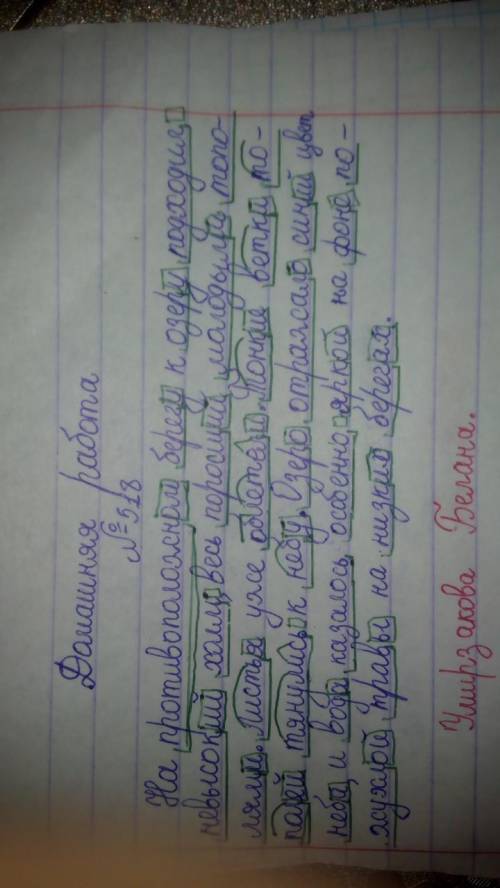 Домашняя работа
№518
На противоположного берега к озеру подходил
невысокий холм, весь поросший молодыми топо-
лями. Листья уже облетели. Тонкие ветки то-
полей тянулись к небу. Озеро отражало синий цвет
неба, и вода казалось особенно яркой на фоне по-
жухлой травы на низких берегах.
Умирзакова Белана.